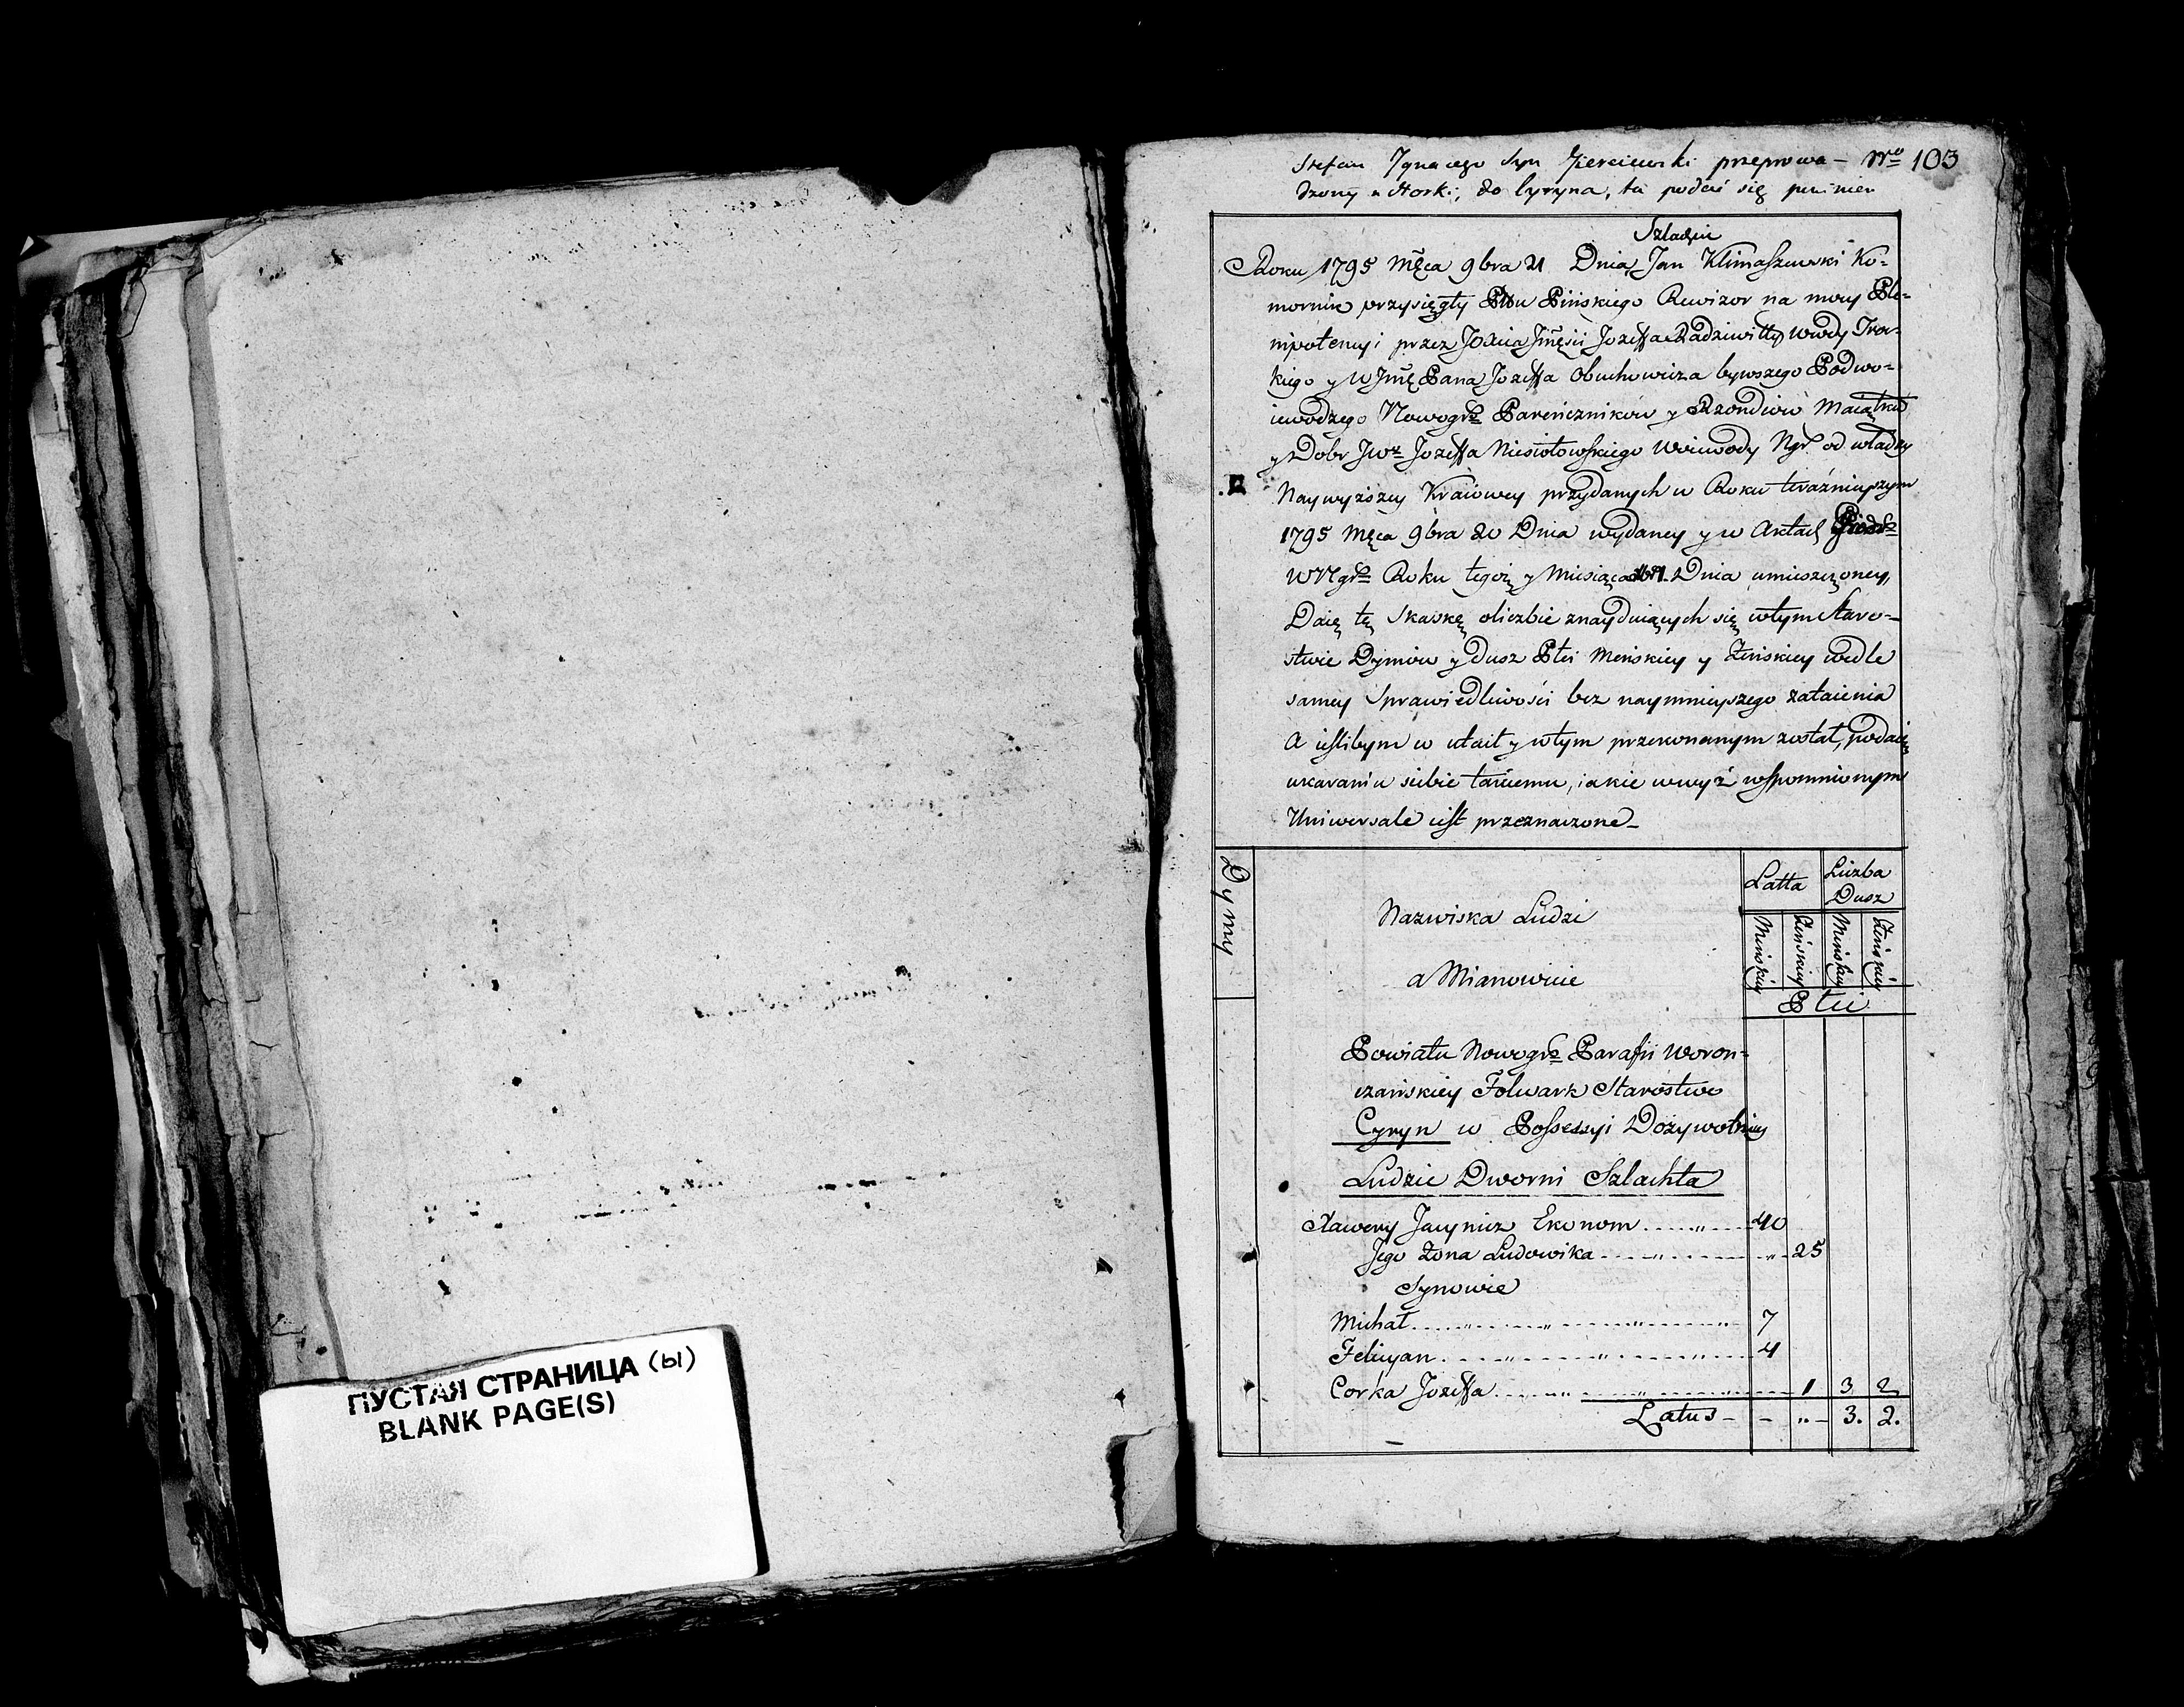 ПУСТАЯ СТРАНИЦА (ы)
BLANK PAGE(S)
Stefan Jgnacego Syn przeprowa- Nro 103
dzony z Horki, do Cyryna, tu podać się powinien
Szlachcic
Roku 1795 Mca 9bra 21 Dnia Jan Klimaszewski Ko-
mornik przysięgły Pttu Pińskiego Rewizor na mocy Ple-
nipotencyi przez JOXcia Jmci Jozeffa Radziwiłła Wwdy Troc-
kiego y W Jmć Pana Jozeffa Obuchowicza bywszego Podwo-
iewodzego Nowogrz Pareńczników y Rzondców Maiątku
y Dobr JWo Jozeffa Niesiołowskiego Woiewody Ngr. od władzy
Naywyższey Kraiowey przydanych w Roku teraźnieyszym
1795 Męca 9bra 20 Dnia wydaney y w Aktach
WNgrz Roku tegoż y Miesiąca Dnia umieszczoney,
Daię tę Skaskę oliczbie znayduiących się wtym Staro-
stwie Dymów y Dusz Płci Męskiey y Żeńskiey wedle
samey Sprawiedliwości bez naymnieyszego zataienia
A ieslibym w utaił y wtym przekonanym został, podaię
ukaraniu siebie takiemu, iakie wwyż wspomnionym
Uniwersale iest przeznaczone_
Dymy
Nazwiska Ludzi
a Mianowicie
Latta
Liczba
Dusz
Męskiey
Żeńskiey
Męskiey
Żeńskiey
Płci
Powiatu Nowogrz Parafii Woron-
czańskiey Folwark Starostwo
Cyryn w Possessyi Dożywotniey
Ludzie Dworni Szlachta
Xawery Jacynicz Ekonom 40
Jego Żona Ludowika 25
Synowie
Michał 7
Felicyan 4
Corka Jozeffa 1 3 2
Latus - - „ - 3. 2.